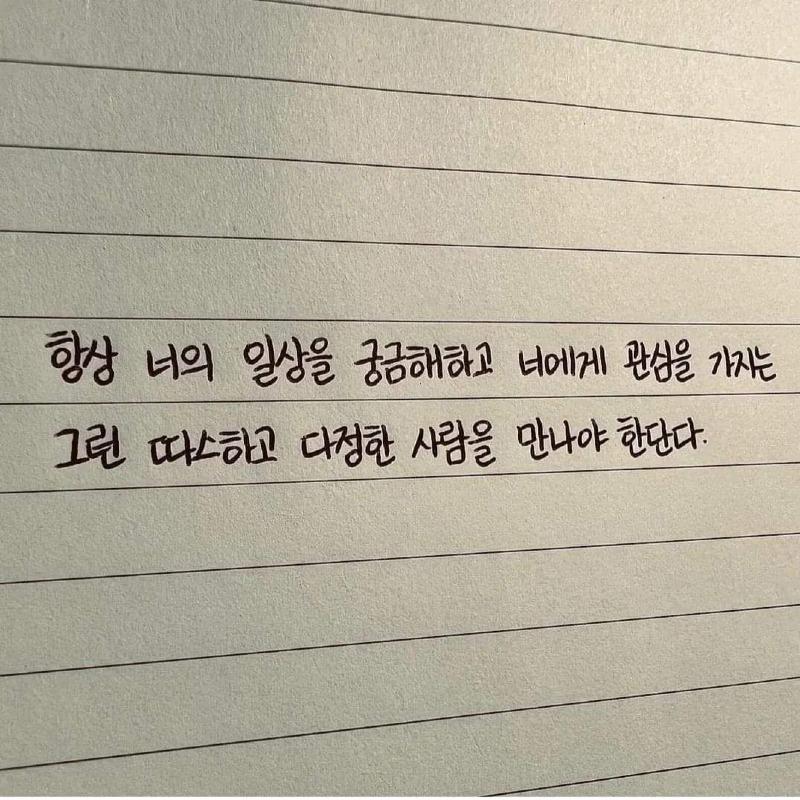 항상 너의 일상을 궁금해하고 너에게 관심을 가지는
그런 따스하고 다정한 사람을 만나야 한단다.